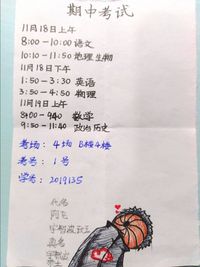 期中考试
11月18日上午
8:00-10:00 语文
10:10-11:50 地理 生物
11月18日下午
1:50-3:30 英语
3:50-4:50 物理
11月19日上午
8:00-9:40 数学
9:50-11:40 政治 历史
考场: 4场 B楼4楼
考号: 1号
学号: 2019135